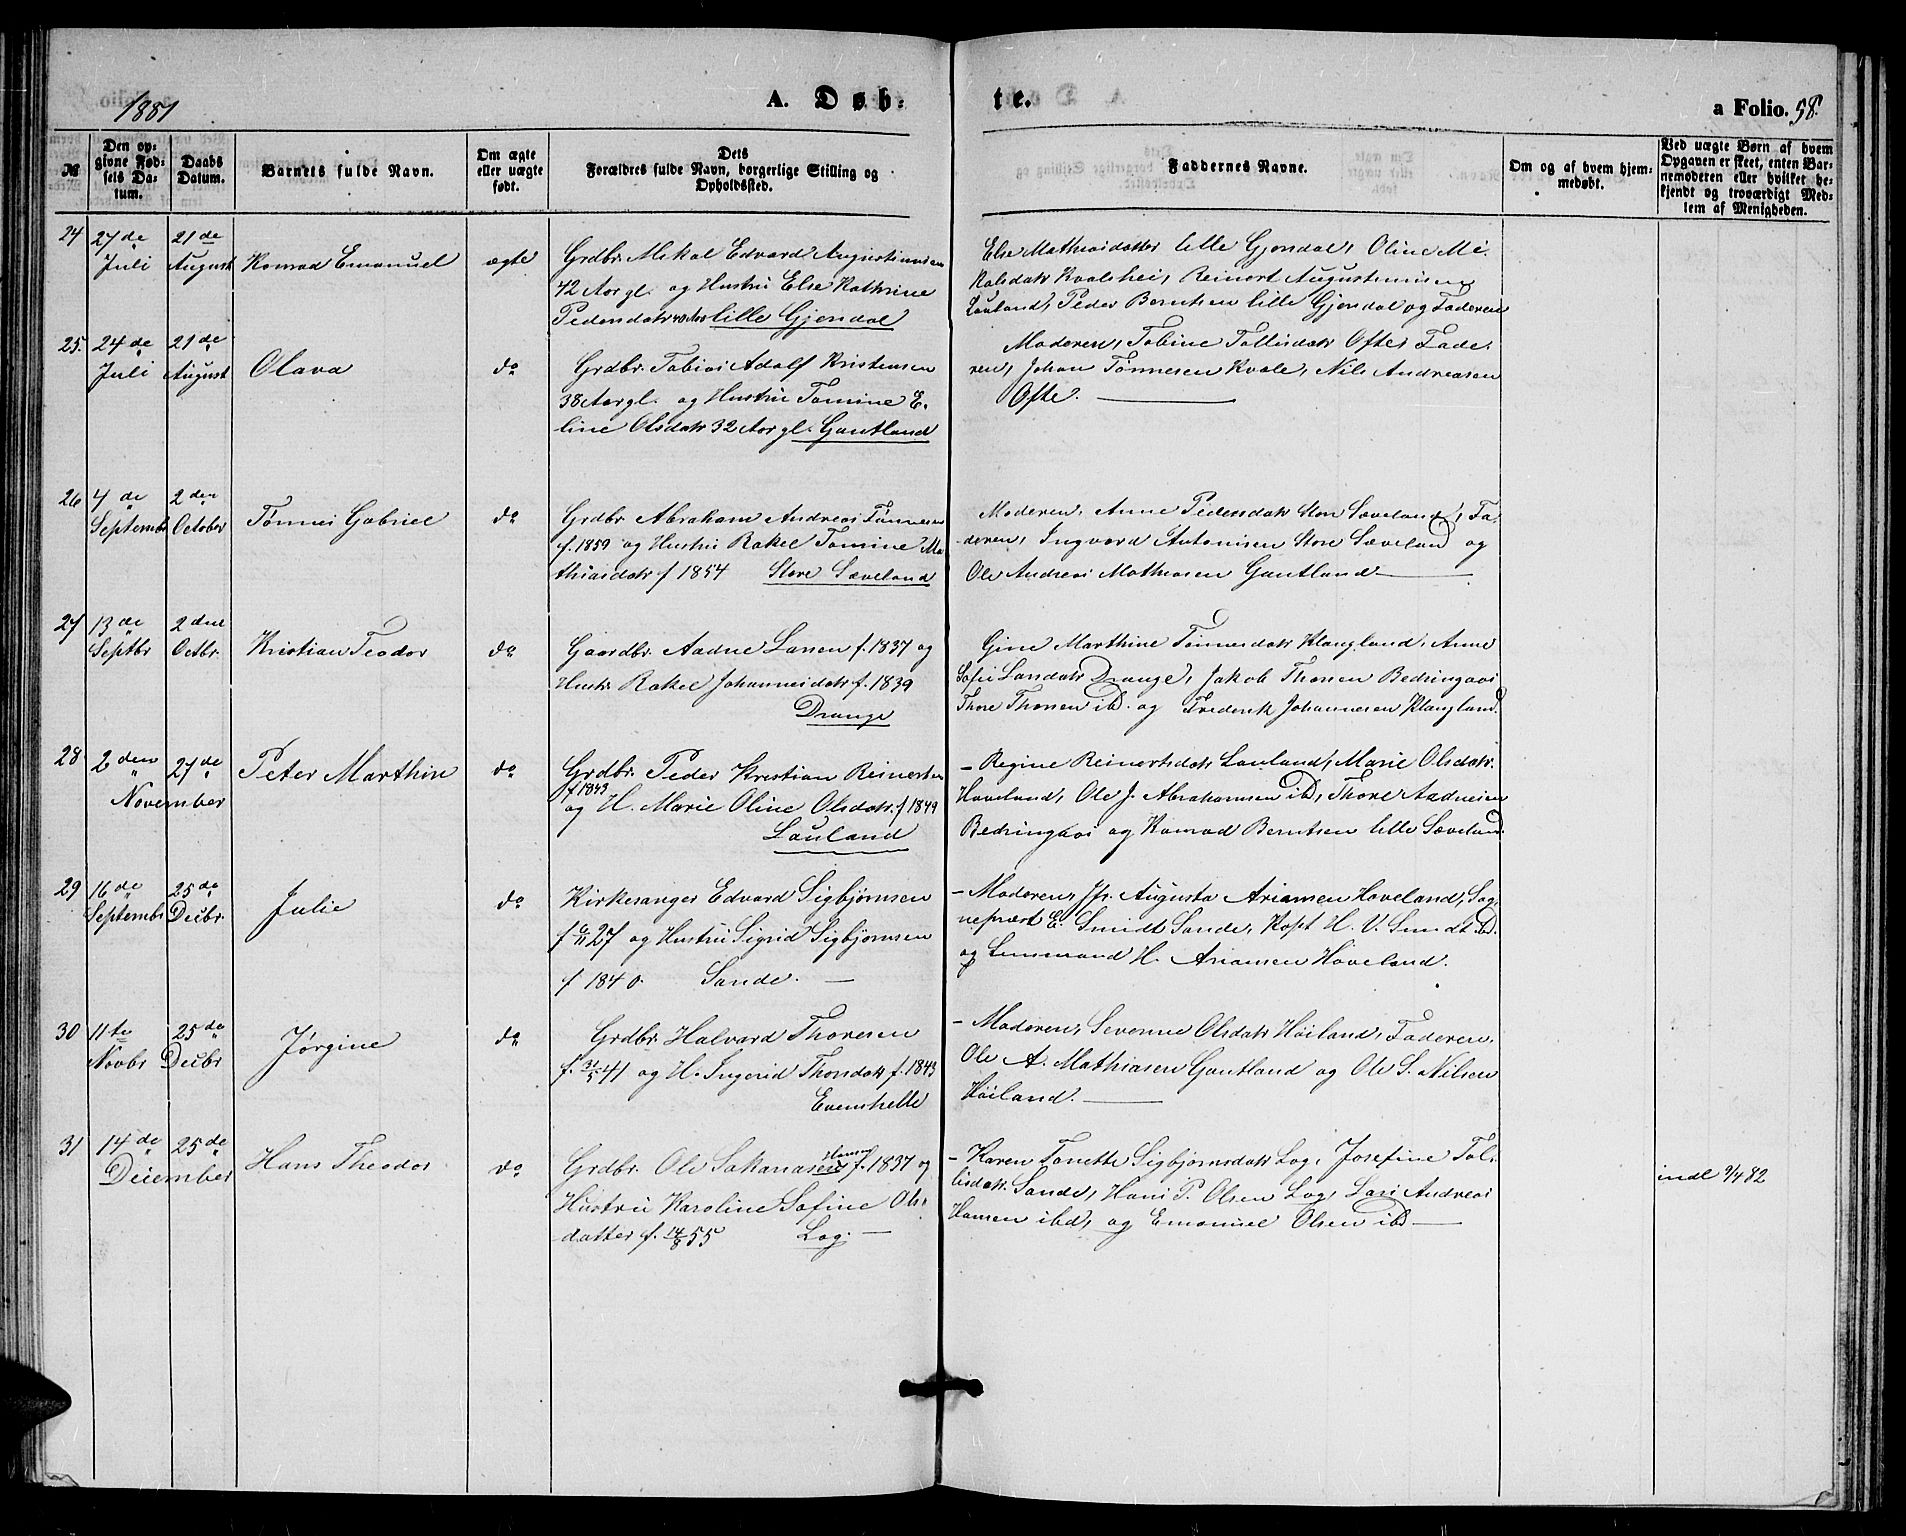 1881
A. Døb-
te.
a Folio. 58.
№
Den op-
givne Fød-
sels Da-
tum.
Daabs
Datum.
Barnets fulde Navn.
Om ægte
eller uægte
født.
Dets
Forældres fulde Navn, borgerlige Stilling og
Opholdssted.
Faddernes Navne.
Om og af hvem hjem-
medøbt.
Ved uægte Børn af hvem
Opgaven er skeet, enten Bar-
nemoderen eller hvilket be-
kjendt og troværdigt Med-
lem af Menigheden.
24 27de Juli
21de August
Konrad Emanuel
ægte
Grdbr. Mikal Edvard Augustinusen
42 Aar gl. og Hustru Else Kathrine
Pedersdatr 40 Aar lille Gjendal
Else Mathiasdatter lille Gjendal, Oline Mi-
kalsdatr Kvalshei, Reinert Augustinusen
Lauland, Peder Berntsen lille Gjendal og Faderen
25. 24de Juli
21de August
Olava
do
Grdbr. Tobias Adolf Kristensen
38 Aar gl. og Hustru Tomine E-
line Olsdatr 32 Aar gl. Gautland
Moderen, Tobine Tollisdatr Ofte, Fade-
ren, Johan Tønnesen Kvale, Nils Andreasen
Ofte.
26 4de Septembr
2den October
Tønnes Gabriel
do
Grdbr. Abraham Andreas Tønnesen
f. 1859 og Hustru Rakel Tomine Ma-
thiasdatr f 1854 Store Sæveland
Moderen, Anne Pedersdatr Store Sæveland, Fa-
deren, Ingvard Antonisen Store Sæveland og
Ole Andreas Mathiasen Gautland
27 13de Septbr
2den Octbr.
Kristian Teodor
do
Gaardbr. Aadne Larsen f. 1837 og
Hustr. Rakel Johannesdatr f. 1839
Drange
Gine Marthine Tønnesdatr Klungland, Anne
Sofie Larsdatr Drange, Jakob Thorsen Bedringaas
Thore Thorsen ibd. og Frederik Johannesen Klungland.
28 2den November
27de
Peter Marthin
do
Grdbr. Peder Kristian Reinertsen
f 1843
og H. Marie Oline Olsdatr. f 1849
Lauland
- Regine Reinertsdatr Lauland, Marie Olsdatr.
Haveland, Ole J. Abrahamsen ibd, Thore Aadnesen
Bedringaas og Konrad Berntsen lille Sæveland
29 16de Septembr
25de Decbr.
Julie
do
Kirkesanger Edvard Sigbjørnsen
f 6/11 27 og Hustru Sigrid Sigbjørnsen
f 1840. Sande.
- Moderen, Jfr. Augusta Ariansen Hoveland, Sog-
neprest E. Smidt Sande, Kapt H. V. Smidt ibd.
og Lensmand H. Ariansen Hoveland.
30 11te Novbr
25de Decbr
Jørgine
do
Grdbr. Halvard Thoresen
f. 31/5 41 og H. Ingerid Thorsdatr f. 1843
Evenshelle
- Moderen, Severine Olsdatr Høiland, Faderen,
Ole A. Mathiasen Gautland og Ole S. Nilsen
Høiland.
31 14de December
25de
Hans Theodor
do
Hansen
Grdbr. Ole Sakariasen f. 1837 og
Hustru Karoline Sofine Ols-
datter f. 14/8 55 Log.
- Karen Tonette Sigbjørnsdatr Log, Josefine Tol-
lisdatr. Sande, Hans P. Olsen Log, Lars Andreas
Hansen ibd, og Emanuel Olsen ibd
indl 9/4 82